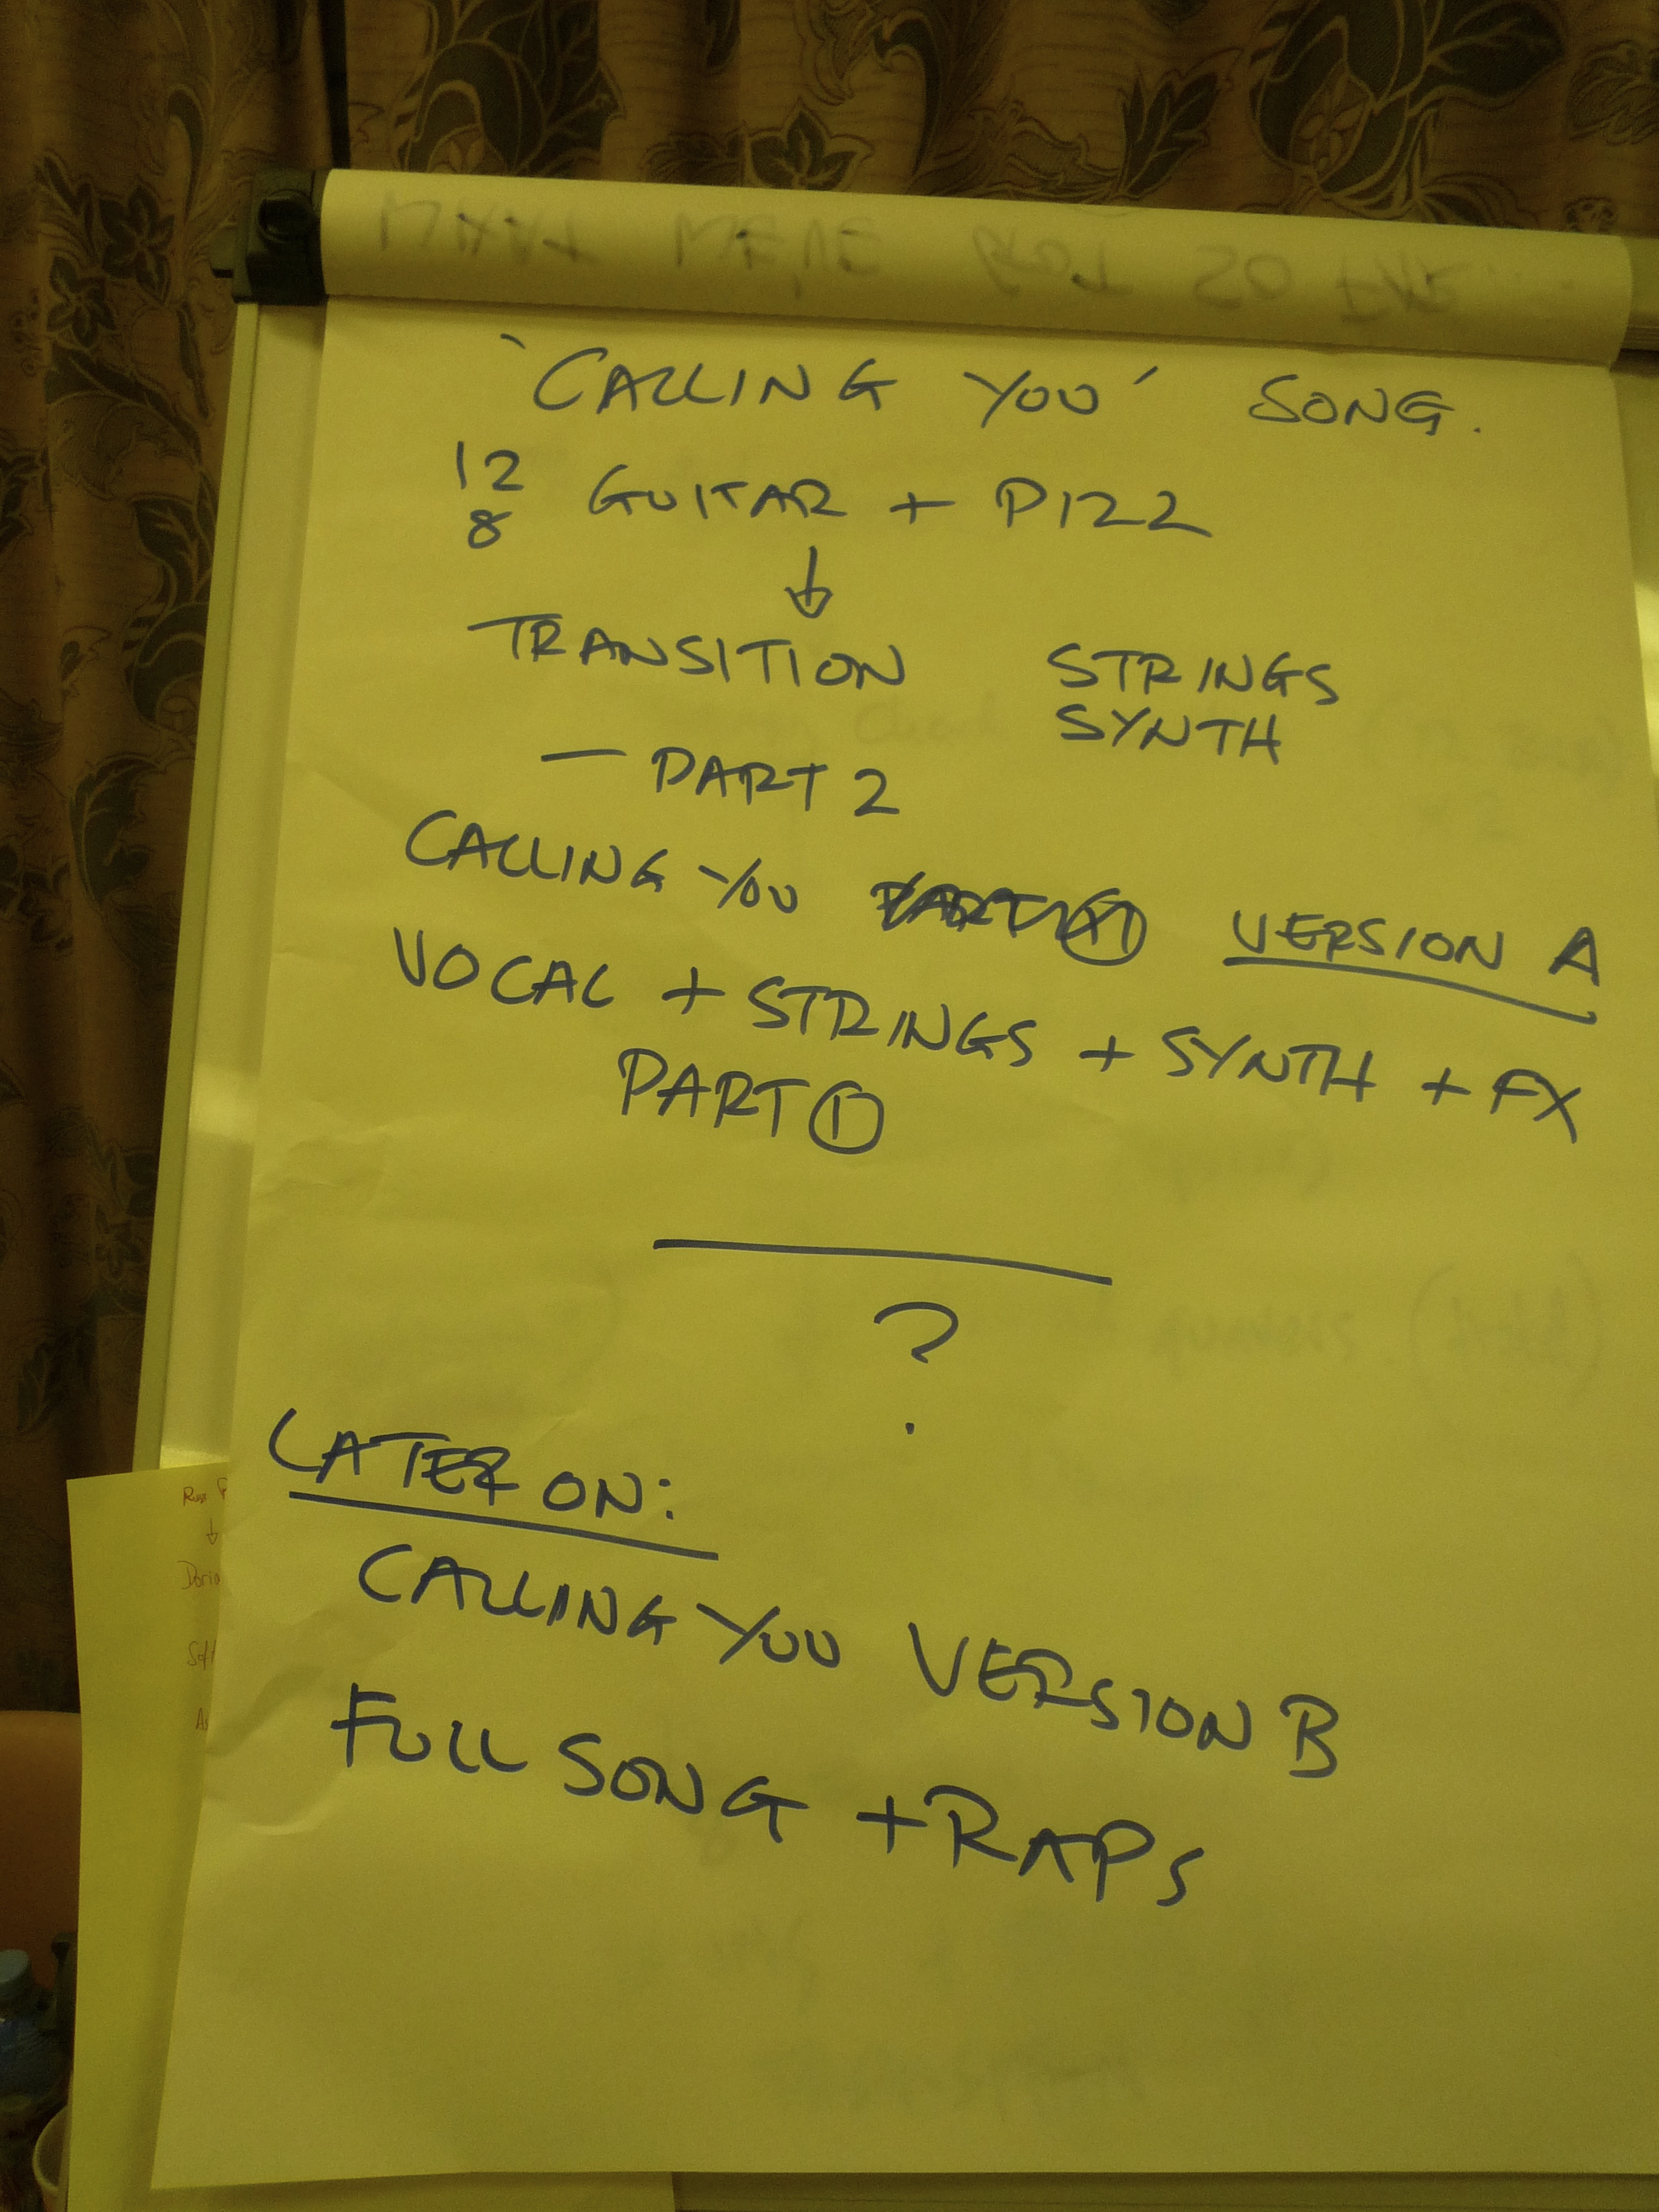 'CALLING YOU' SONG.
12
8 GUITAR + PIZZ
↓
TRANSITION STRINGS
SYNTH
— PART 2
CALLING YOU VERSION A
VOCAL + STRINGS + SYNTH + FX
PART ①
?
LATER ON:
CALLING YOU VERSION B
FULL SONG + RAPS